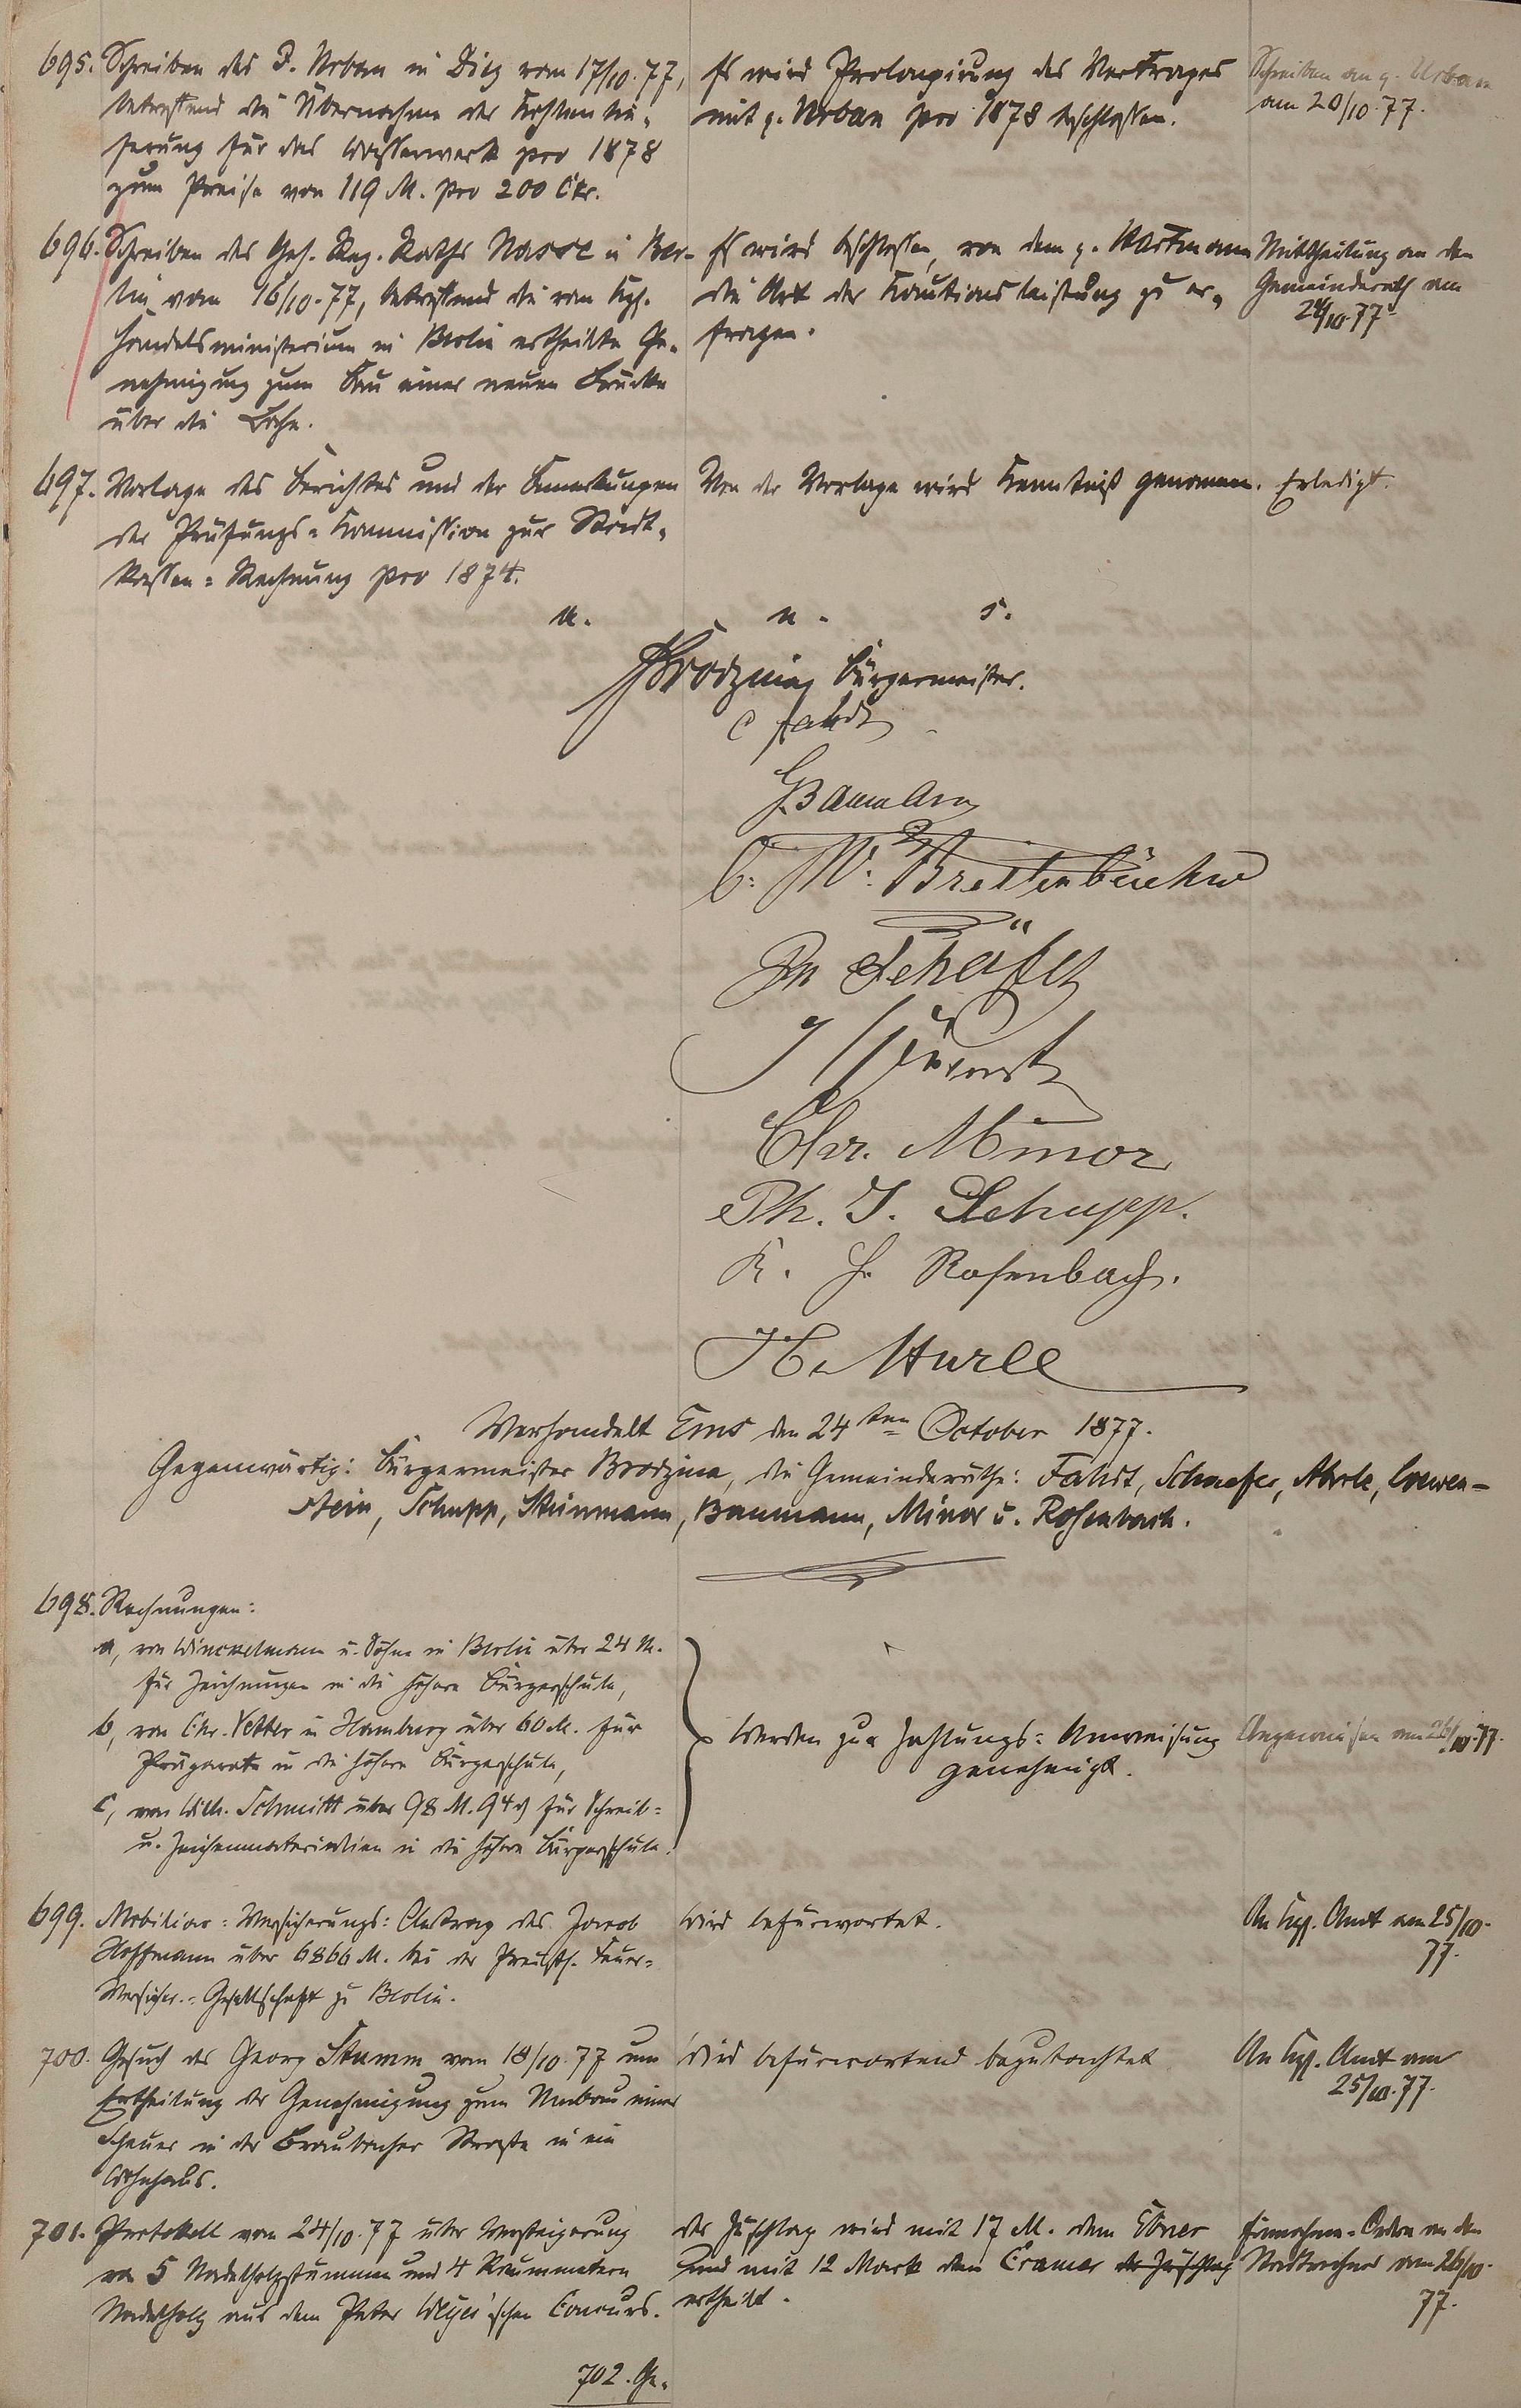 695. Schreiben des J. Urban in Diez vom 17/10.77,
betreffend die Übernahme der Kohlenlie-
ferung für das Wasserwerk pro 1878
zum Preise von 119 M. pro 200 Ctr.
Es wird Prolongirung des Vertrages
mit p. Urban pro 1878 beschlossen.
Schreiben an p. Urban
am 20/10.77.
696. Schreiben des Geh. Reg. Raths Nasse in Ber-
lin vom 16/10.77, betreffend die vom Kgl.
Handelsministerium in Berlin ertheilte Ge-
nehmigung zum Bau einer neuen Brücke
über die Lahn.
Es wird beschlossen, von dem p.
die Art der Kautionsleistung zu er-
fragen.
Mittheilung an den
Gemeinderath am
24/10.77
697. Vorlage des Berichtes und der Bemerkungen
der Prüfungs-Kommission zur Stadt-
kassen-Rechnung pro 1874.
Von der Vorlage wird Kenntniß genommen.
Erledigt.
u. n. s.
Brodzina Bürgermeister.
C Fahdt
Baumann
C. W. Breitenbücher
Schäfer
Chr. Minor
Ph. J. Schupp.
K. H. Rosenbach.
Verhandelt Ems den 24ten October 1877.
Gegenwärtig: Bürgermeister Brodzina, die Gemeinderäthe: Fahdt, Schaefer, Loewen-
stein, Schupp, Baumann, Minor u. Rosenbach.
698. Rechnungen:
a, von Winckelmann u. Söhne in Berlin über 24 M.
für Zeichnungen in die höhere Bürgerschule,
b, von Chr. Vetter in Hamburg über 60 M. für
Präparate in die höhere Bürgerschule,
c, von Wilh. Schmitt über 98 M. 94 ₰ für Schreib-
u. Zeichenmaterialien in die höhere Bürgerschule.
Werden zur Zahlungs-Anweisung
genehmigt.
Angewiesen am 26/10.77.
699. Mobiliar-Versicherungs-Antrag des Jacob
Hoffmann über 6866 M. bei der Preuß. Feuer-
Versicher.-Gesellschaft zu Berlin.
Wird befürwortet.
An Kgl. Amt am 25/10.
77.
700. Gesuch des Georg Stumm vom 18/10.77 um
Ertheilung der Genehmigung zum Umbau einer
Scheuer in der Braubacher Straße in ein
Wohnhaus.
Wird befürwortend begutachtet
An Kgl. Amt am
25/10.77.
701. Protokoll vom 24/10.77 über Versteigerung
von 5 Nadelholzstämmen und 4 Raummetern
Nadelholz aus dem Peter Weyer'schen Concurs.
Der Zuschlag wird mit 17 M. dem Ebner
und mit 12 Mark dem Cramer der Zuschlag
ertheilt.
Einnahme-Ordre an den
Stadtrechner am 26/10.
77.
702. Ge-